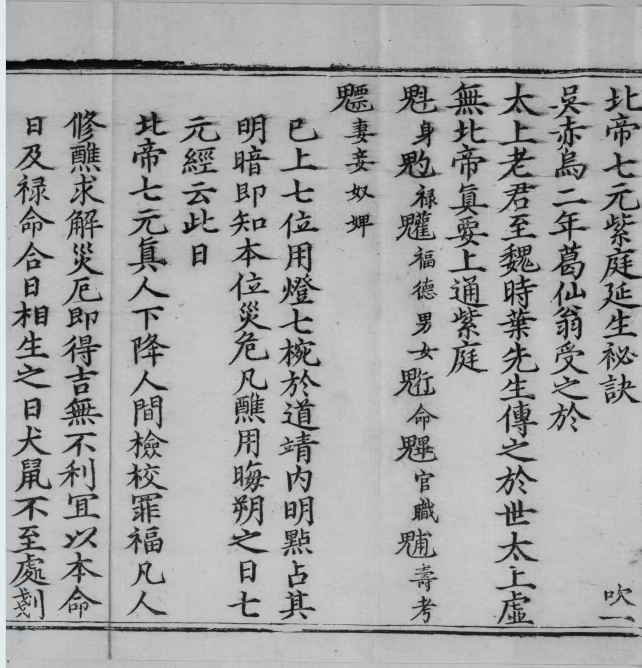 北帝七元紫庭延生祕訣 吹一
吳赤烏二年葛仙翁受之於
太上老君至魏時葉先生傳之於世太上虛
無北帝真要上通紫庭
魁身𩲃祿𩵄福德男女䰢命魓官職𩳐壽考
魒妻妾奴婢
已上七位用燈七椀於道靖內明點占其
明暗即知本位災危凡醮用晦朔之日七
元經云此日
北帝七元真人下降人間檢校罪福凡人
修醮求解災厄即得吉無不利宜以本命
日及祿命合日相生之日犬鼠不至處剗